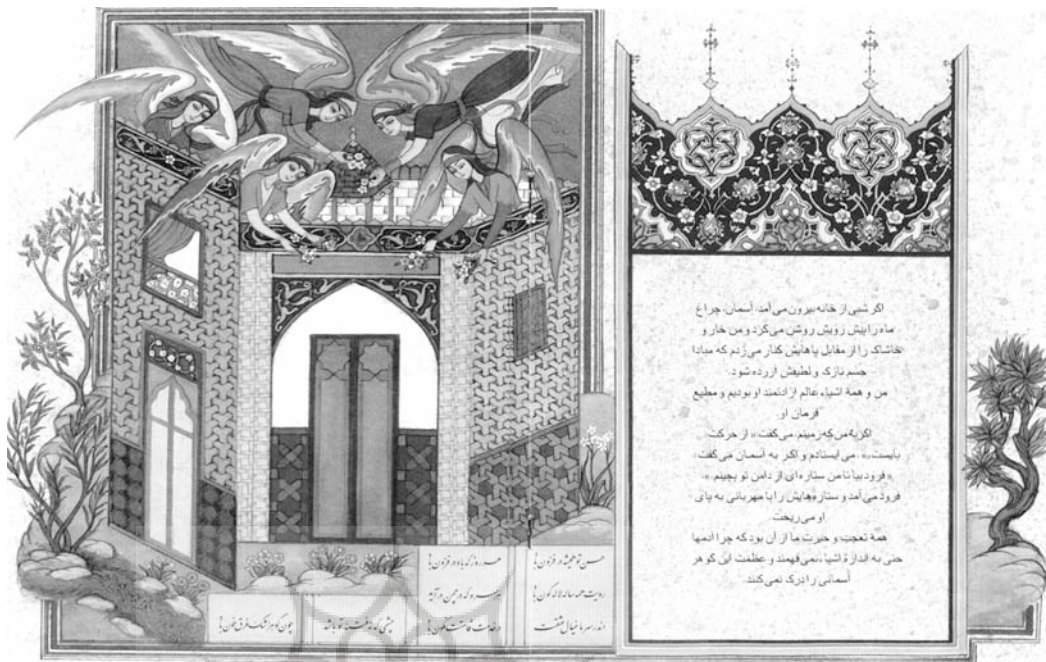 اگر شبی از خانه بیرون می آمد، آسمان، چراغ
ماه را پیش رویش روشن می کرد و من خار و
خاشاک را از مقابل پاهایش کنار می زدم که مبادا
جسم نازک و لطیفش آزرده شود.
من و همهٔ اشیاء عالم ارادتمند او بودیم و مطیع
فرمان او.
اگر به من که زمینم، می گفت: «از حرکت
بایست،»، می ایستادم و اگر به آسمان می گفت:
«فرود بیا تا من ستاره ای از دامن تو بچینم.»،
فرود می آمد و ستاره هایش را با مهربانی به پای
او می ریخت.
همهٔ تعجب و حیرت ما از آن بود که چرا آدمها
حتی به اندازهٔ اشیاء، نمی فهمند و عظمت این گوهر
آسمانی را درک نمی کنند.
حسن تو همیشه در فزون باد
رویت همه ساله لاله گون باد
اندر سر ما خیال عشقت
هر روز که باد در فزون باد
هر سرو که در چمن درآید
در خدمت قامتت نگون باد
چشمی که نه فتنه تو باشد
چون گوهر اشک غرق خون باد